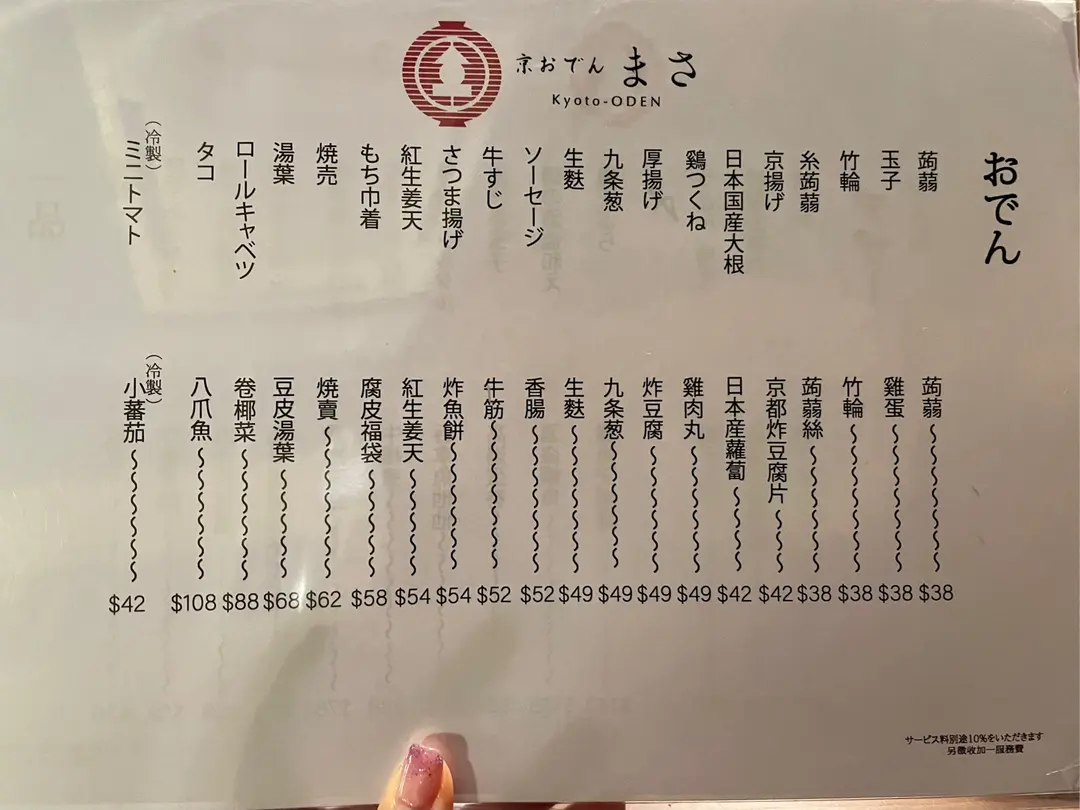 京おでん まさ
Kyoto-ODEN
おでん
蒟蒻
玉子
竹輪
糸蒟蒻
京揚げ
日本国産大根
鶏つくね
厚揚げ
九条葱
生麩
ソーセージ
牛すじ
さつま揚げ
紅生姜天
もち巾着
焼売
湯葉
ロールキャベツ
タコ
(冷製)
ミニトマト
蒟蒻 $38
雞蛋 $38
竹輪 $38
蒟蒻絲 $38
京都炸豆腐片 $42
日本産蘿蔔 $42
雞肉丸 $49
炸豆腐 $49
九条葱 $49
生麩 $49
香腸 $52
牛筋 $52
炸魚餅 $54
紅生姜天 $54
腐皮福袋 $58
焼賣 $62
豆皮湯葉 $68
卷椰菜 $88
八爪魚 $108
(冷製)
小蕃茄 $42
サービス料別途10%をいただきます
另徵收加一服務費